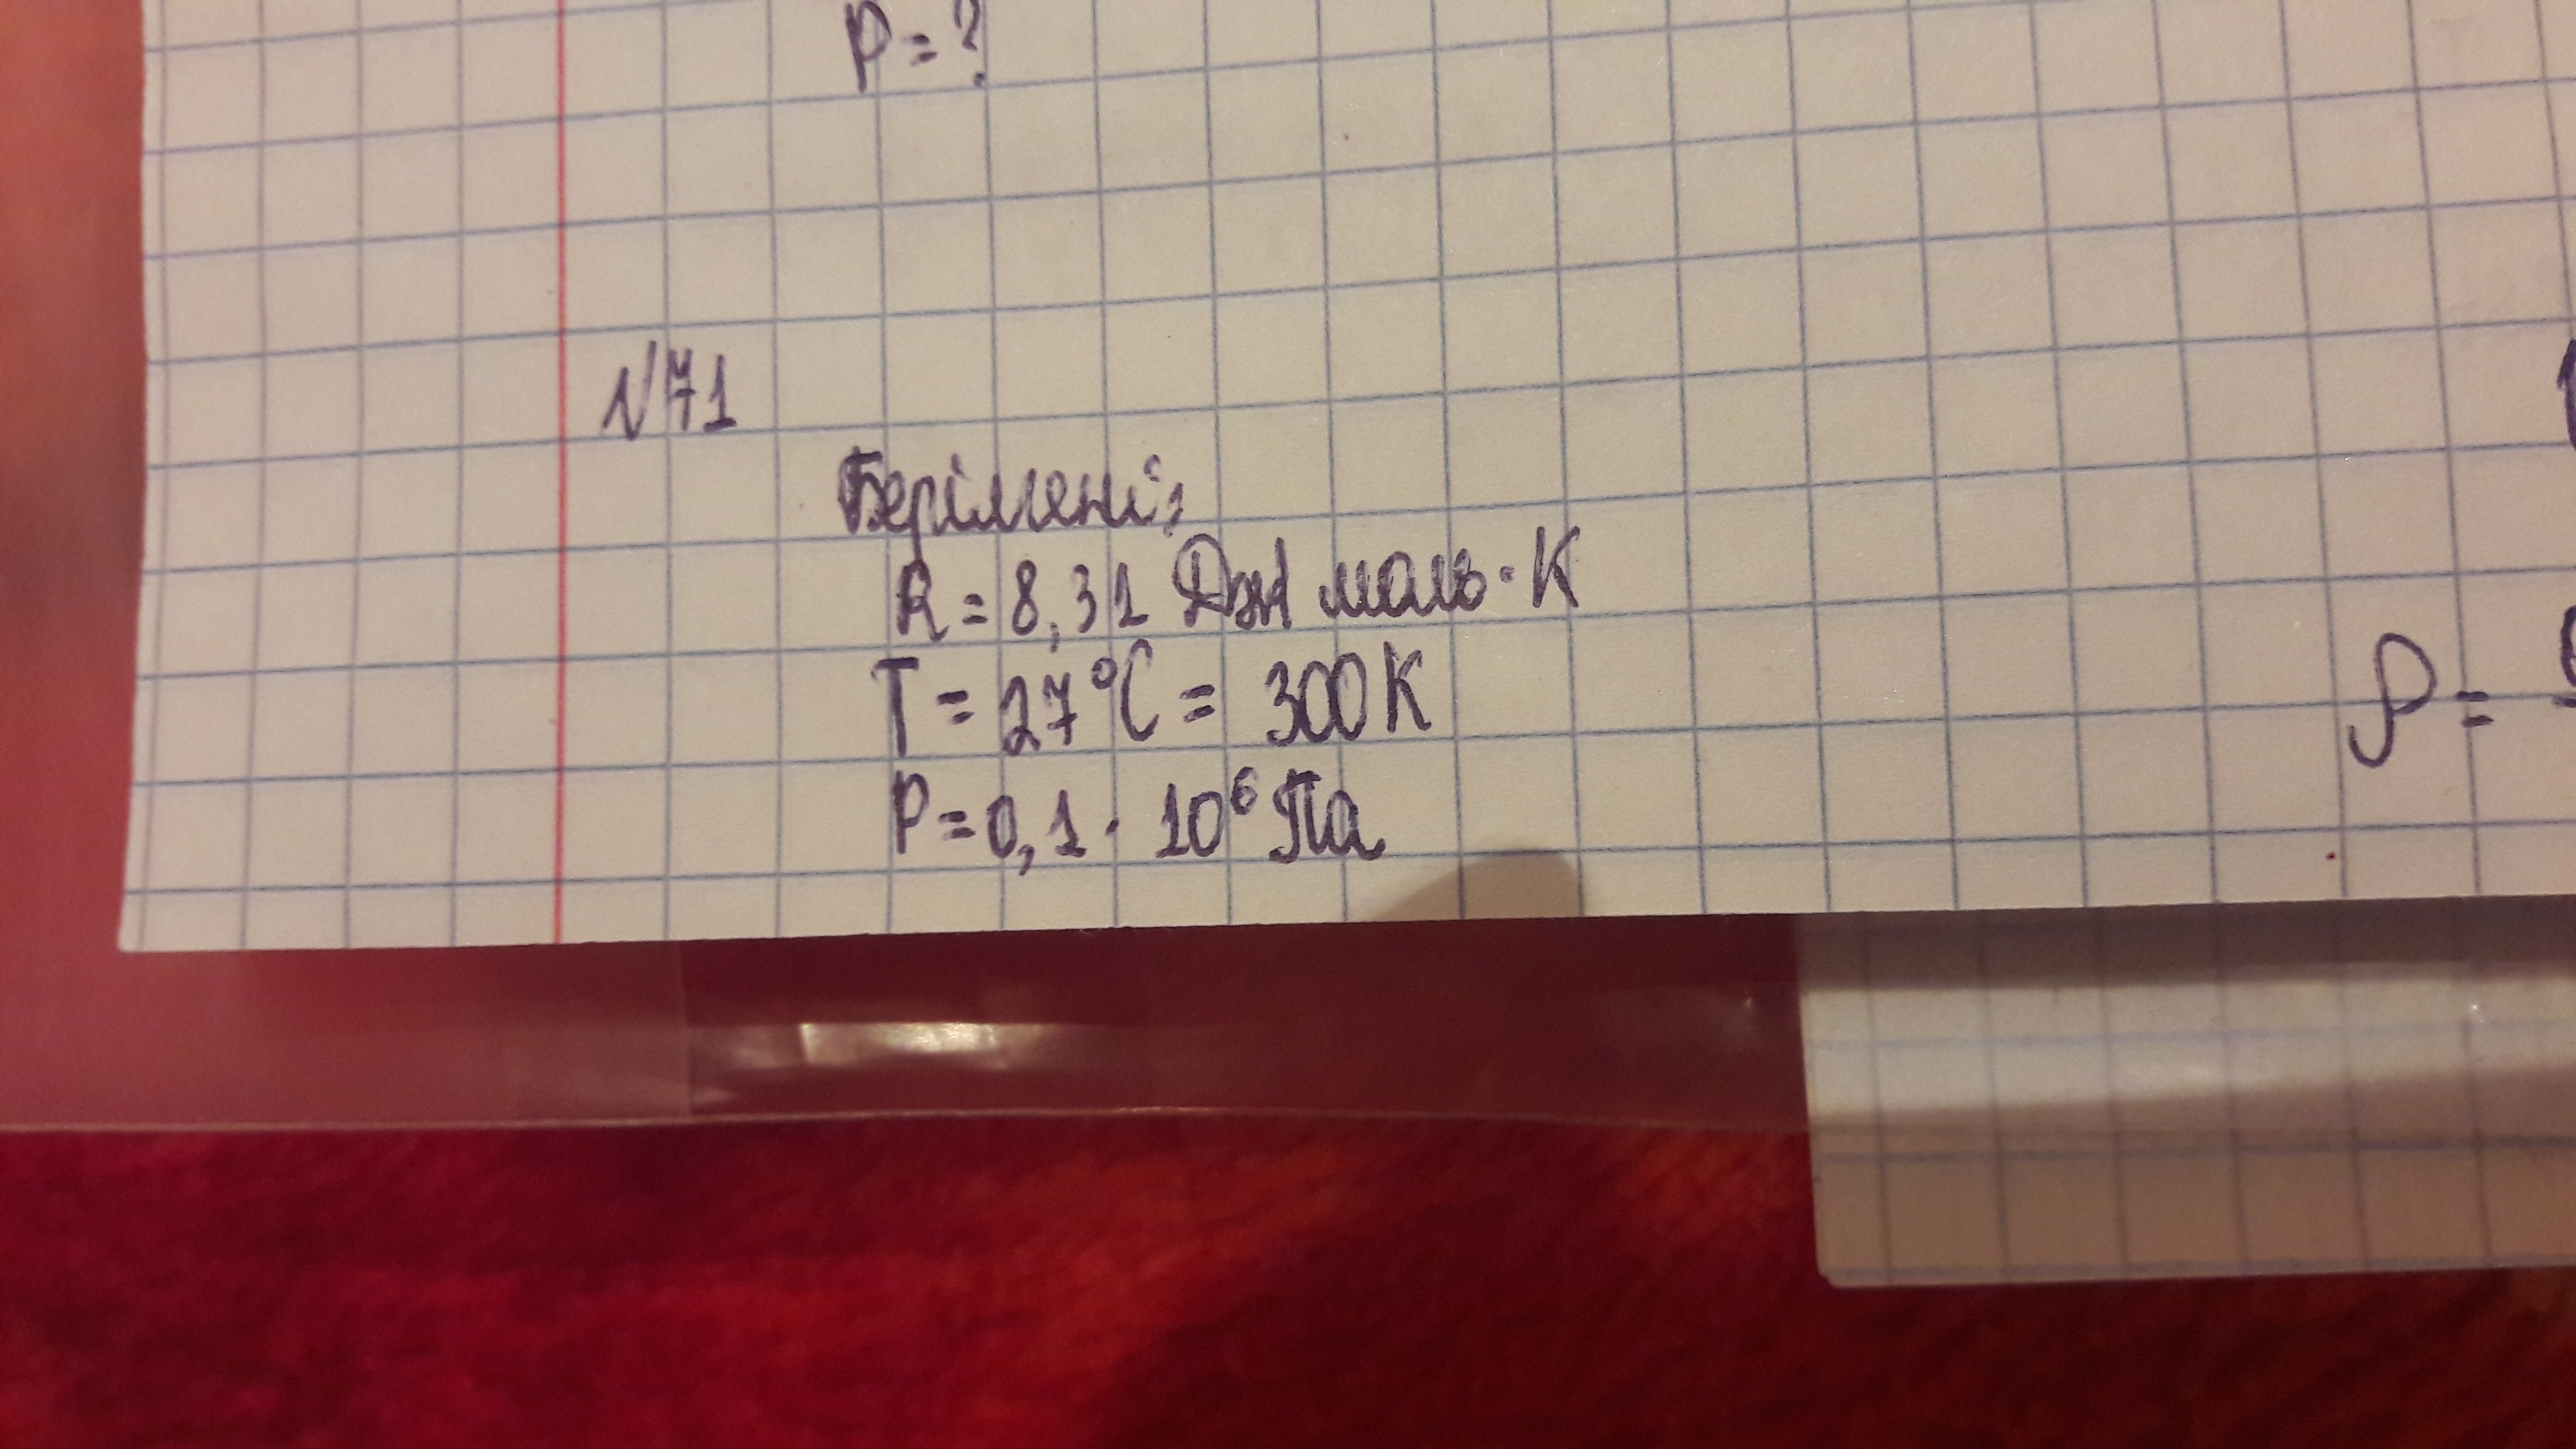 P = ?
N71
Берілгені:
R = 8,31 Дж моль·К
T = 27°C = 300K
P = 0,1 · 10⁶ Па
ρ =